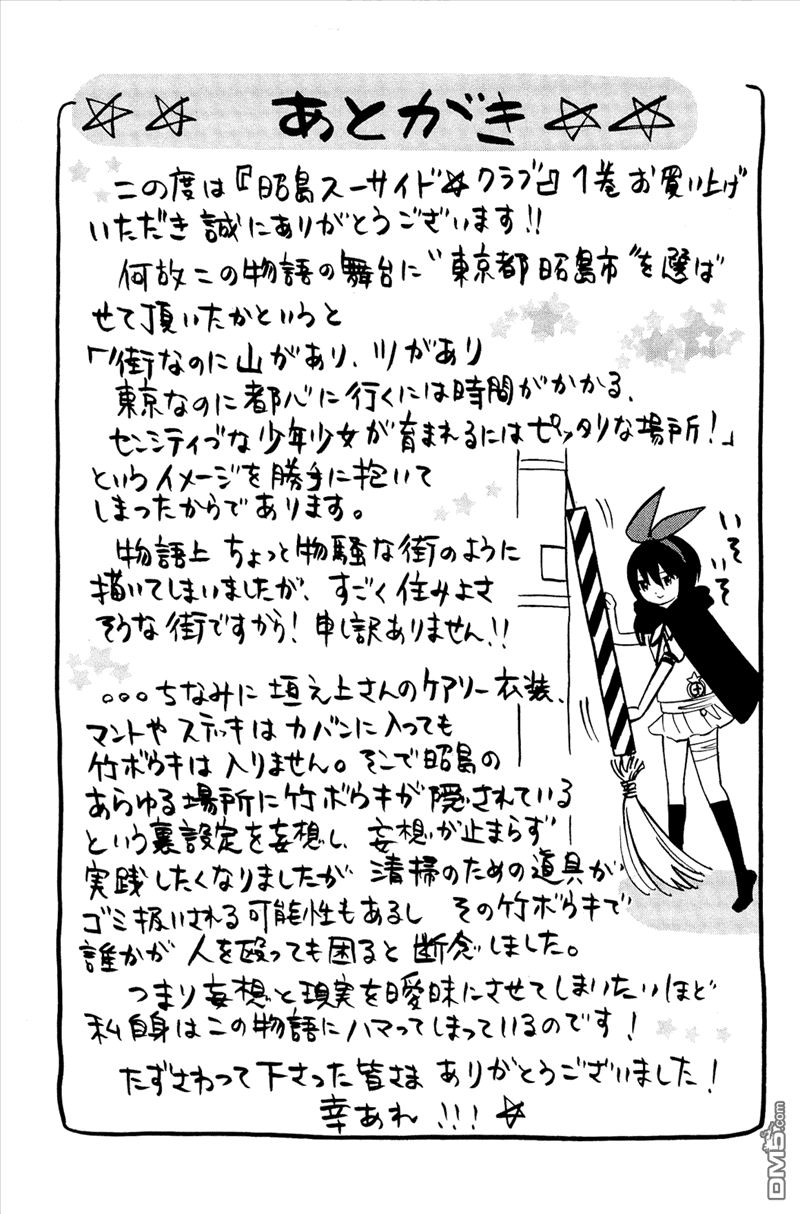 ☆☆ あとがき ☆☆
この度は『昭島スーサイド☆クラブ』1巻お買い上げ
いただき誠にありがとうございます!!
何故この物語の舞台に"東京都昭島市"を選ば
せて頂いたかというと
「街なのに山があり、川があり
東京なのに都心に行くには時間がかかる、
センシティブな少年少女が育まれるにはピッタリな場所!」
というイメージを勝手に抱いて
しまったからであります。
物語上ちょっと物騒な街のように
描いてしまいましたが、すごく住みよさ
そうな街ですから!申し訳ありません!!
いそいそ
。。。ちなみに垣之上さんのケアリー衣装、
マントやステッキはカバンに入っても
竹ボウキは入りません。そこで昭島の
あらゆる場所に竹ボウキが隠されている
という裏設定を妄想し、妄想が止まらず
実践したくなりましたが 清掃のための道具が
ゴミ扱いされる可能性もあるし その竹ボウキで
誰かが人を殴っても困ると断念しました。
つまり妄想と現実を曖昧にさせてしまいたいほど
私自身はこの物語にハマってしまっているのです!
たずさわって下さった皆さまありがとうございました!
幸あれ!!!☆
DM5.com